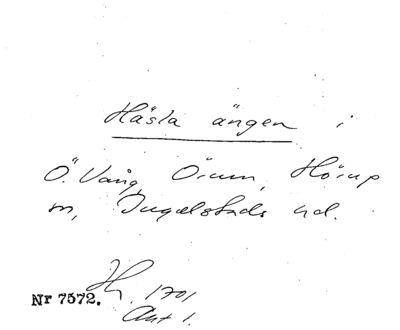 Hästa ängen i
Ö. Vång, Örum, Hörup
m, Ingelstads hd.
Nr 7572. 1701
Akt 1.